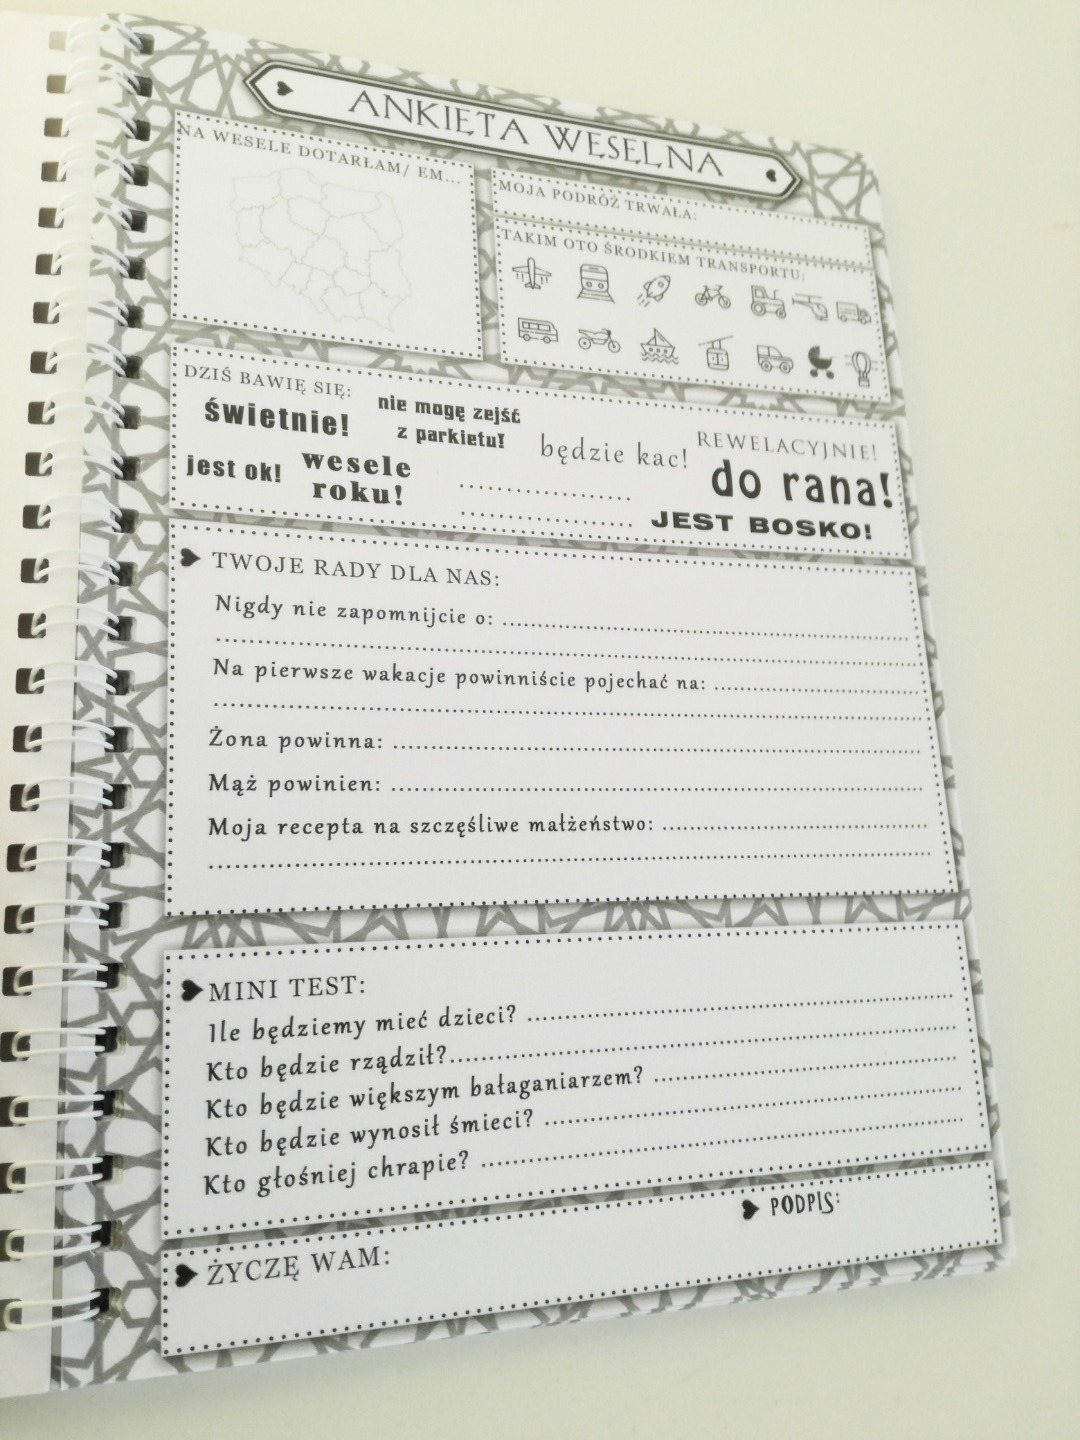 ANKIETA WESELNA
NA WESELE DOTARŁAM/ EM...
MOJA PODRÓŻ TRWAŁA:
TAKIM OTO ŚRODKIEM TRANSPORTU:
DZIŚ BAWIĘ SIĘ:
świetnie!
nie mogę zejść
z parkietu!
będzie kac!
REWELACYJNIE!
jest ok!
wesele
roku!
do rana!
JEST BOSKO!
TWOJE RADY DLA NAS:
Nigdy nie zapomnijcie o:
Na pierwsze wakacje powinniście pojechać na:
Żona powinna:
Mąż powinien:
Moja recepta na szczęśliwe małżeństwo:
MINI TEST:
Ile będziemy mieć dzieci?
Kto będzie rządził?
Kto będzie większym bałaganiarzem?
Kto będzie wynosił śmieci?
Kto głośniej chrapie?
PODPIS:
ŻYCZĘ WAM: